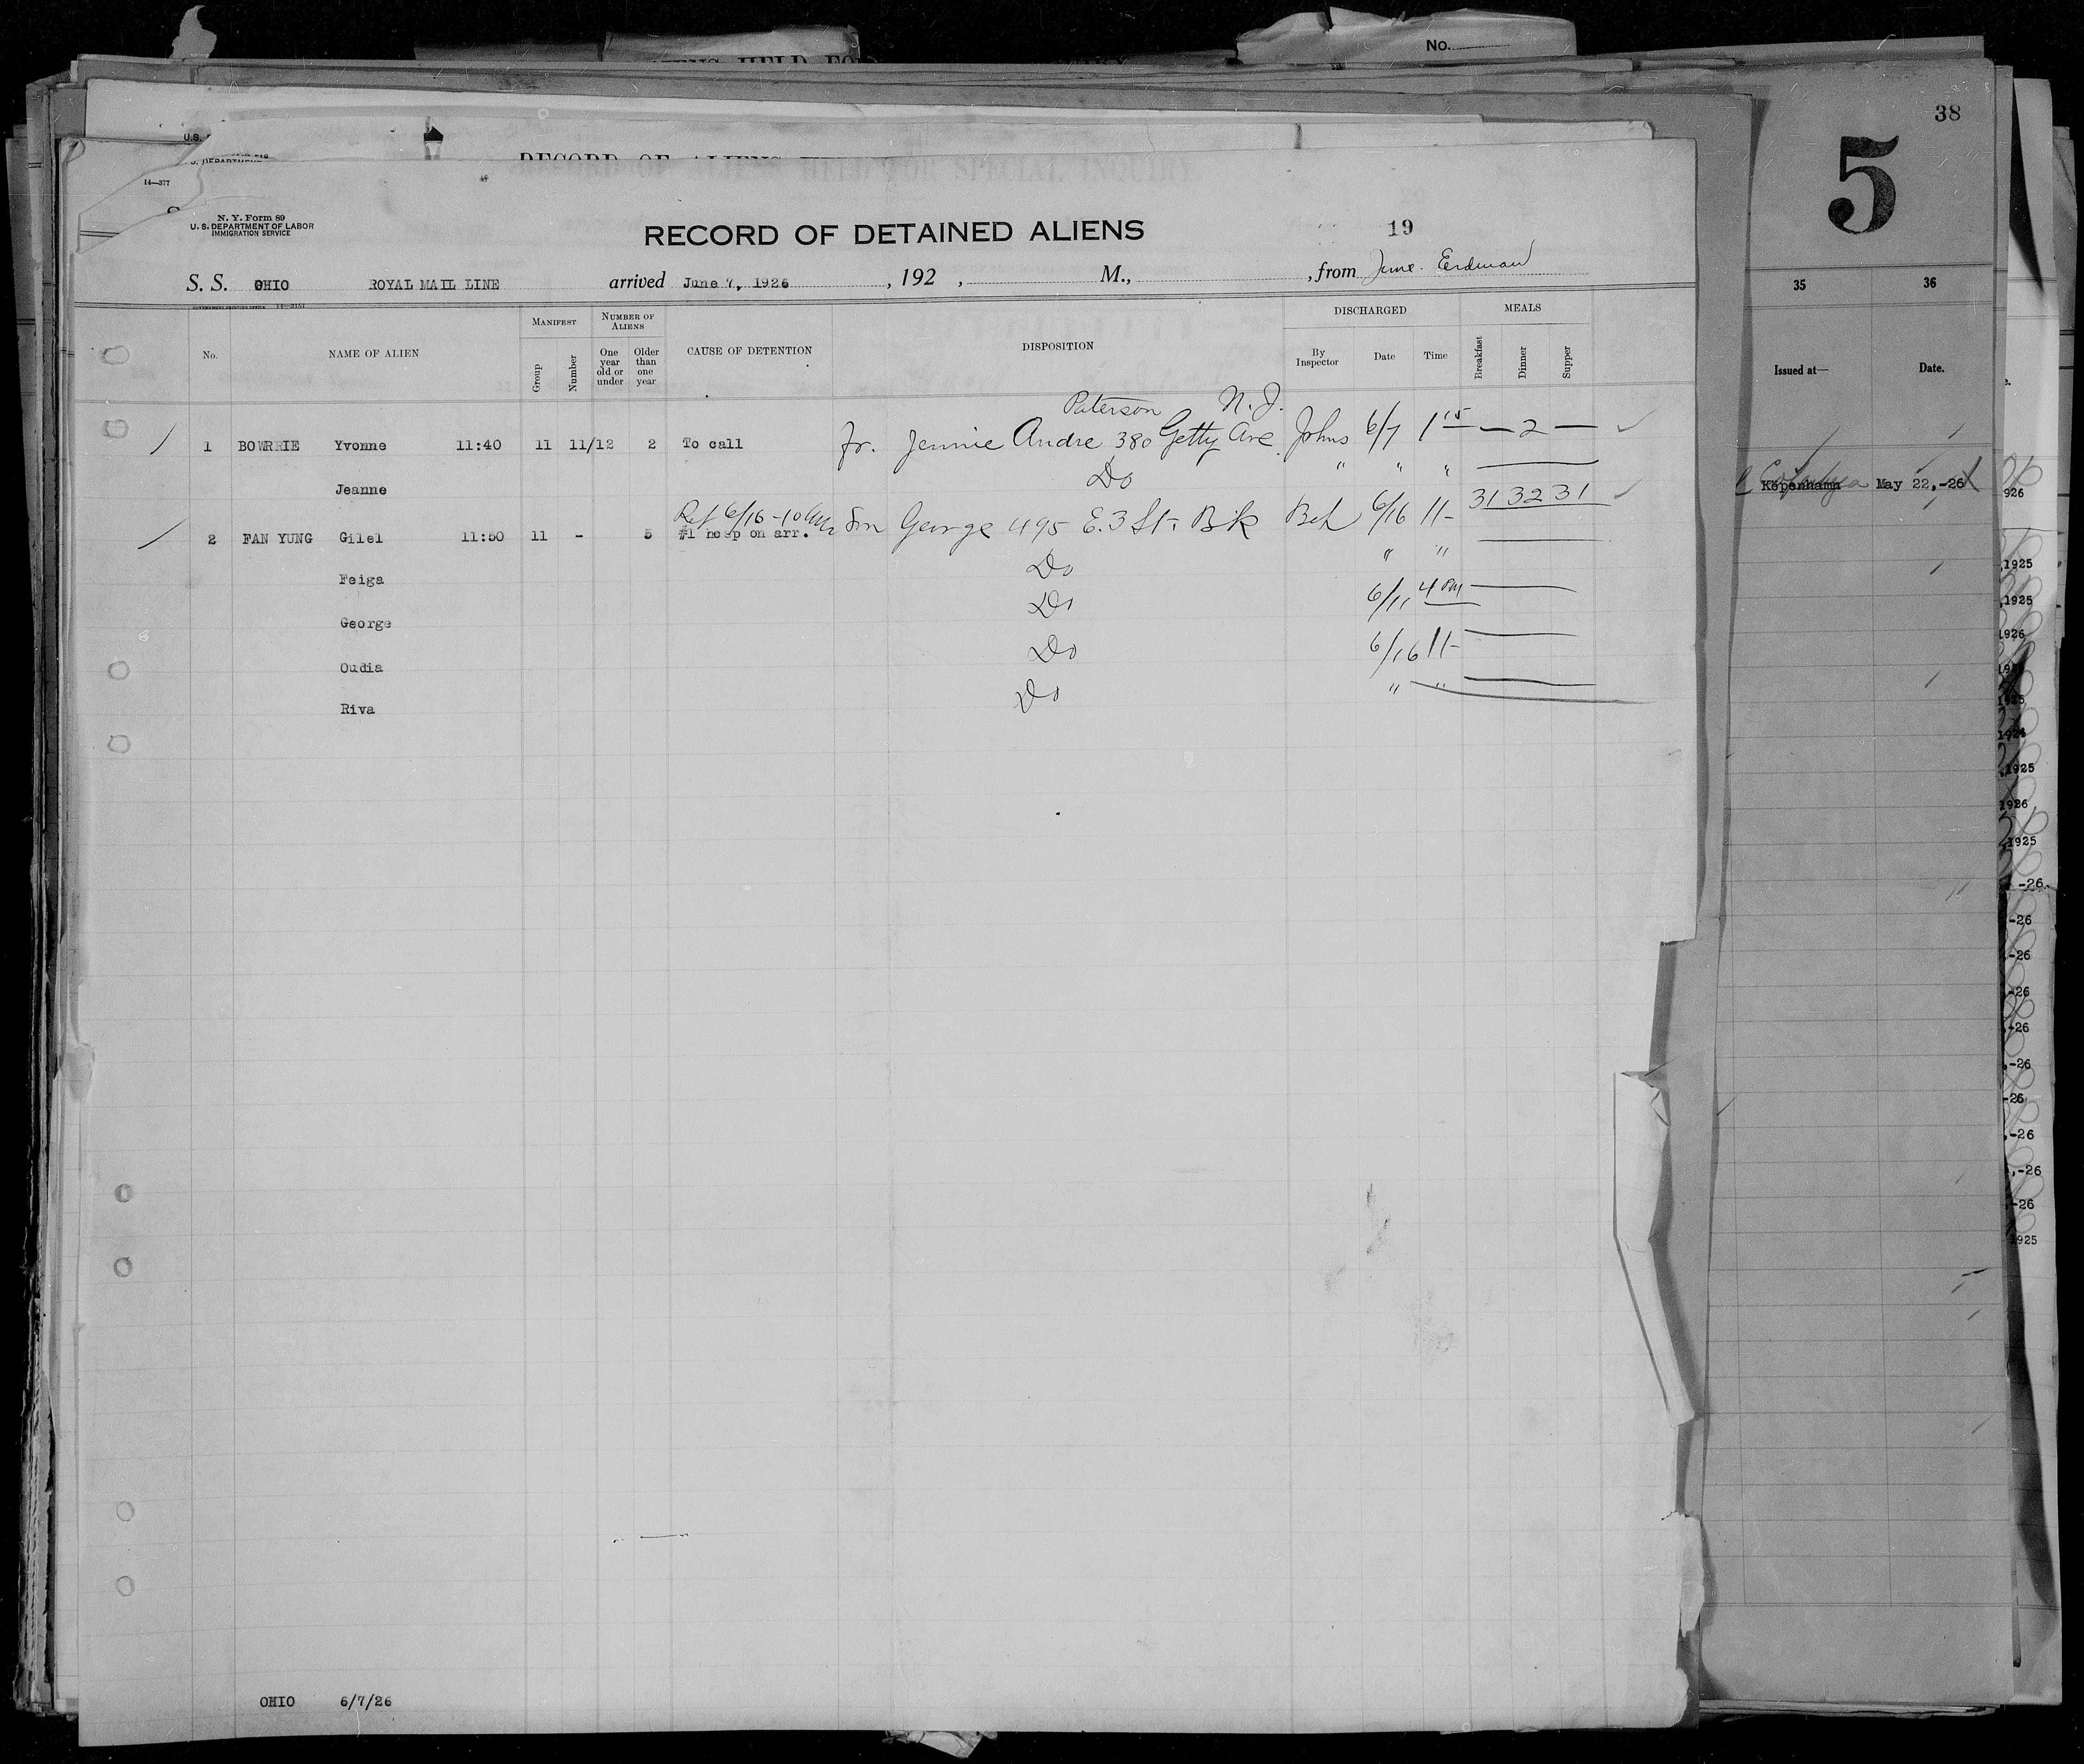 No.
38
5
14—377
N. Y. Form 89
U. S. DEPARTMENT OF LABOR
IMMIGRATION SERVICE
RECORD OF DETAINED ALIENS
19
S. S. OHIO ROYAL MAIL LINE arrived June 7, 1926, 192 , M., , from June. Erdman
MANIFEST NUMBER OF ALIENS DISCHARGED MEALS
No. NAME OF ALIEN Group Number One year old or under Older than one year CAUSE OF DETENTION DISPOSITION By Inspector Date Time Breakfast Dinner Supper
Paterson N. J.
1 BOWRRIE Yvonne 11:40 11 11/12 2 To call fr. Jennie Andre 380 Getty Ave. Johns 6/7 1 15 — 2 —
Jeanne Do " " "
Ref 6/16 - 10 AM Son George 495 E. 3 St. Bk Beh 6/16 11- 31 32 31
2 FAN YUNG Gilel 11:50 11 - 5 #1 hosp on arr.
Feiga Do " "
George Do 6/11 4 PM
Oudia Do 6/16 11-
Riva Do " "
OHIO 6/7/26
35 36
Issued at— Date.
Kopenhamn May 22,-26
926
,1925
,1925
1926
,1925
1926
,1925
-26.
-26
-26
-26
-26
-26
-26
-26
,-26
-26
1925